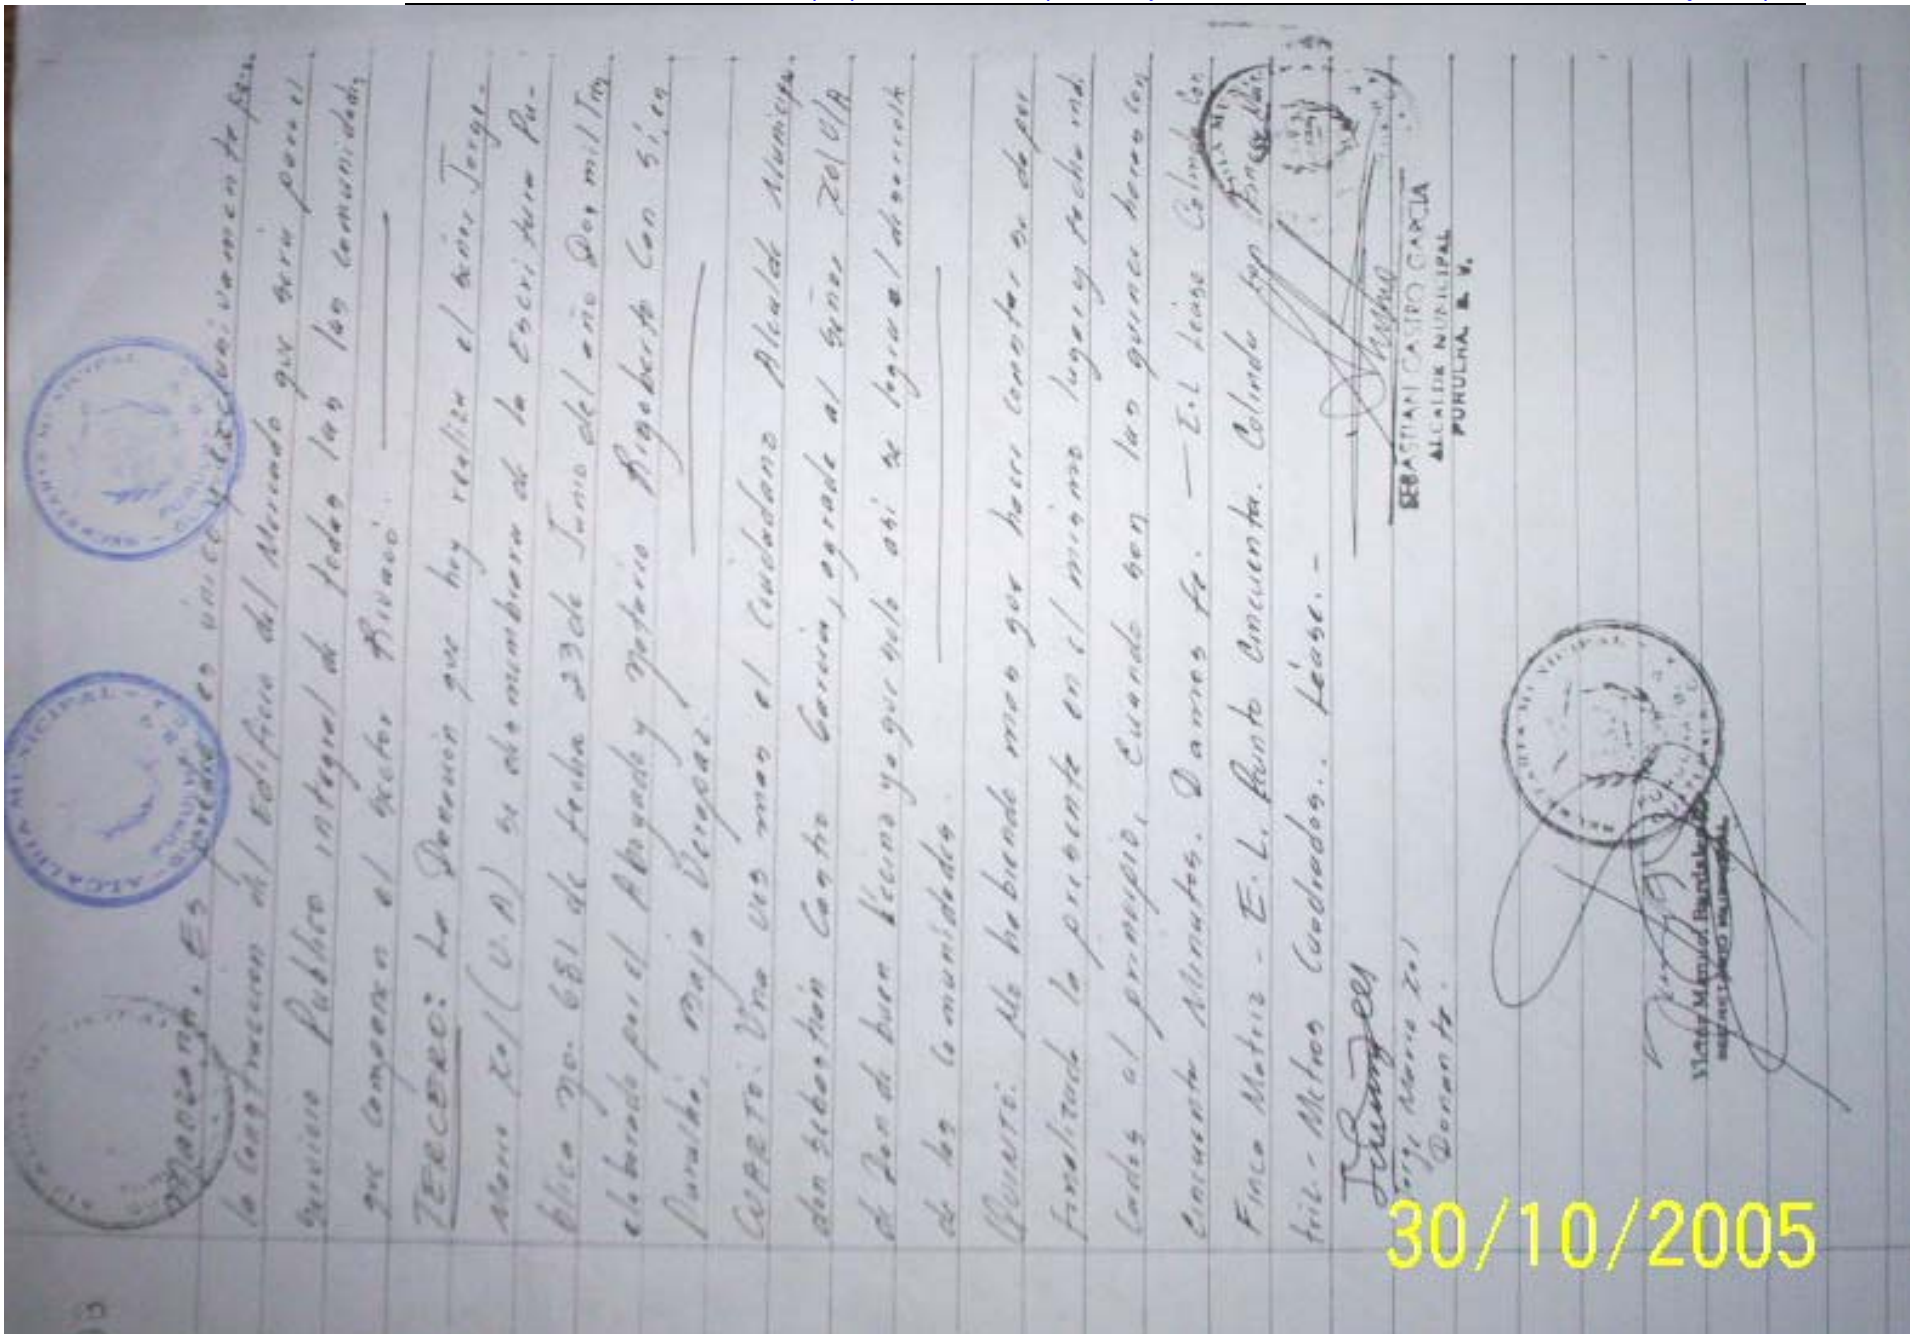 Manzana. Es es única y exclusivamente para
la construccion del Edificio del Mercado que sera para el
servicio Publico integral de todas las las comunidades
que componen el sector Rivaco.
TERCERO: La Donacion que hoy realiza el señor Jorge
Mario Xol (U.A) se desmembrara de la Escritura Pu-
blica No. 681 de fecha 23 de Junio del año Dos mil Tres
elaborado por el Abogado y notario Rigoberto Can Si, en
Purulha, Baja Verapaz.
CUARTO: Una ves mas el Ciudadano Alcalde Municipal
don Sebastian Castro Garcia, agrade al señor Xol U/A
de Don de buen Vecino ya que solo asi se logra el desarrollo
de las Comunidades.
QUINTO: No habiendo mas que hacer constar se da por
finalizada la presente en el mismo lugar y fecha indi
cados al principio, Cuando son las quince horas con
Cincuenta Minutos. Damos fe. - E.L Léase Colinda Con
Finca Matriz - E. L. Punto Cincuenta. Colinda
tril.- Metros Cuadrados.. Léase.-
SEBASTIAN CASTRO GARCIA
ALCALDE MUNICIPAL
PURULHA, B. V.
Jorge Mario Xol
Donante.
SECRETARIO MUNICIPAL
ALCALDIA MUNICIPAL
30/10/2005